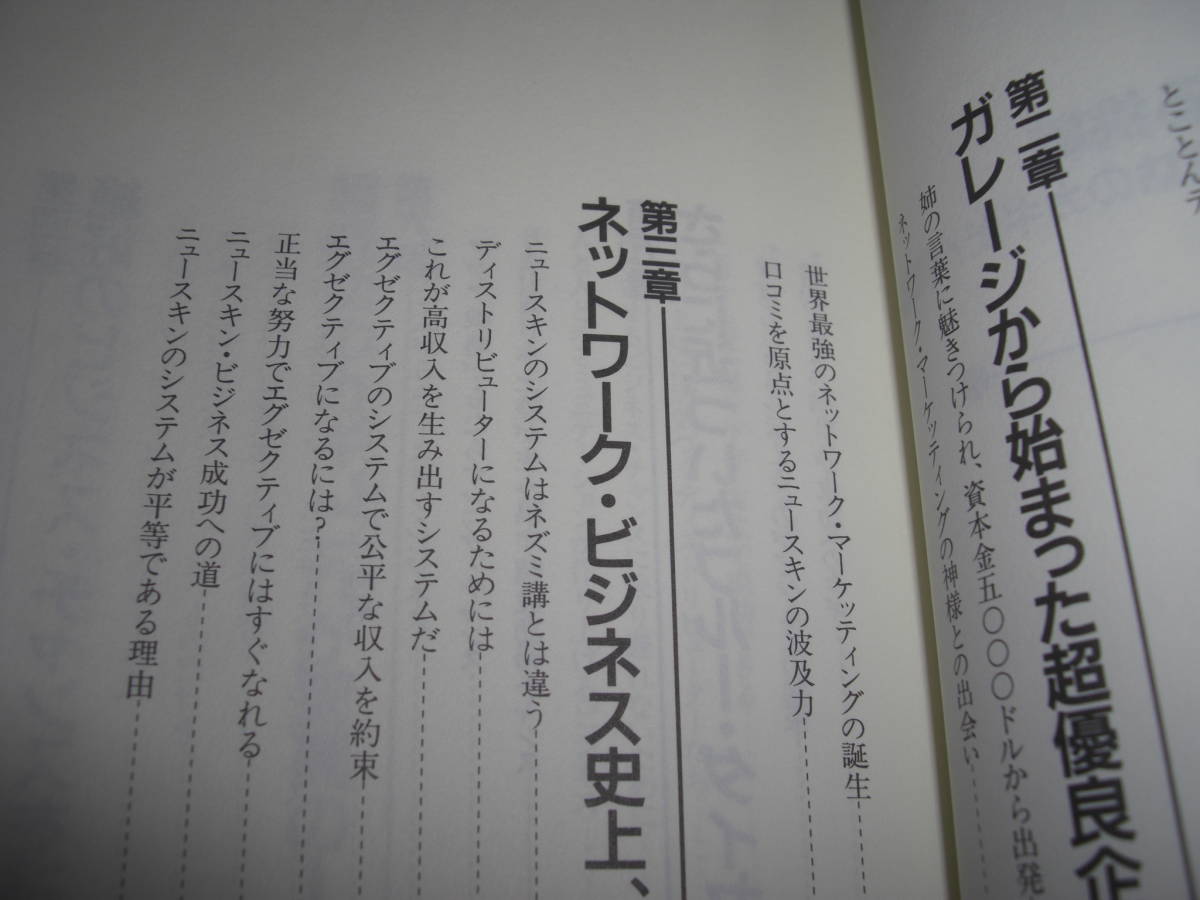 とことん
第二章
ガレージから始まった超優良企
姉の言葉に魅きつけられ、資本金五〇〇〇ドルから出発
ネットワーク・マーケッティングの神様との出会い
世界最強のネットワーク・マーケッティングの誕生
口コミを原点とするニュースキンの波及力
第三章
ネットワーク・ビジネス史上、
ニュースキンのシステムはネズミ講とは違う
ディストリビューターになるためには
これが高収入を生み出すシステムだ
エグゼクティブのシステムで公平な収入を約束
エグゼクティブになるには?
正当な努力でエグゼクティブにはすぐなれる
ニュースキン・ビジネス成功への道
ニュースキンのシステムが平等である理由